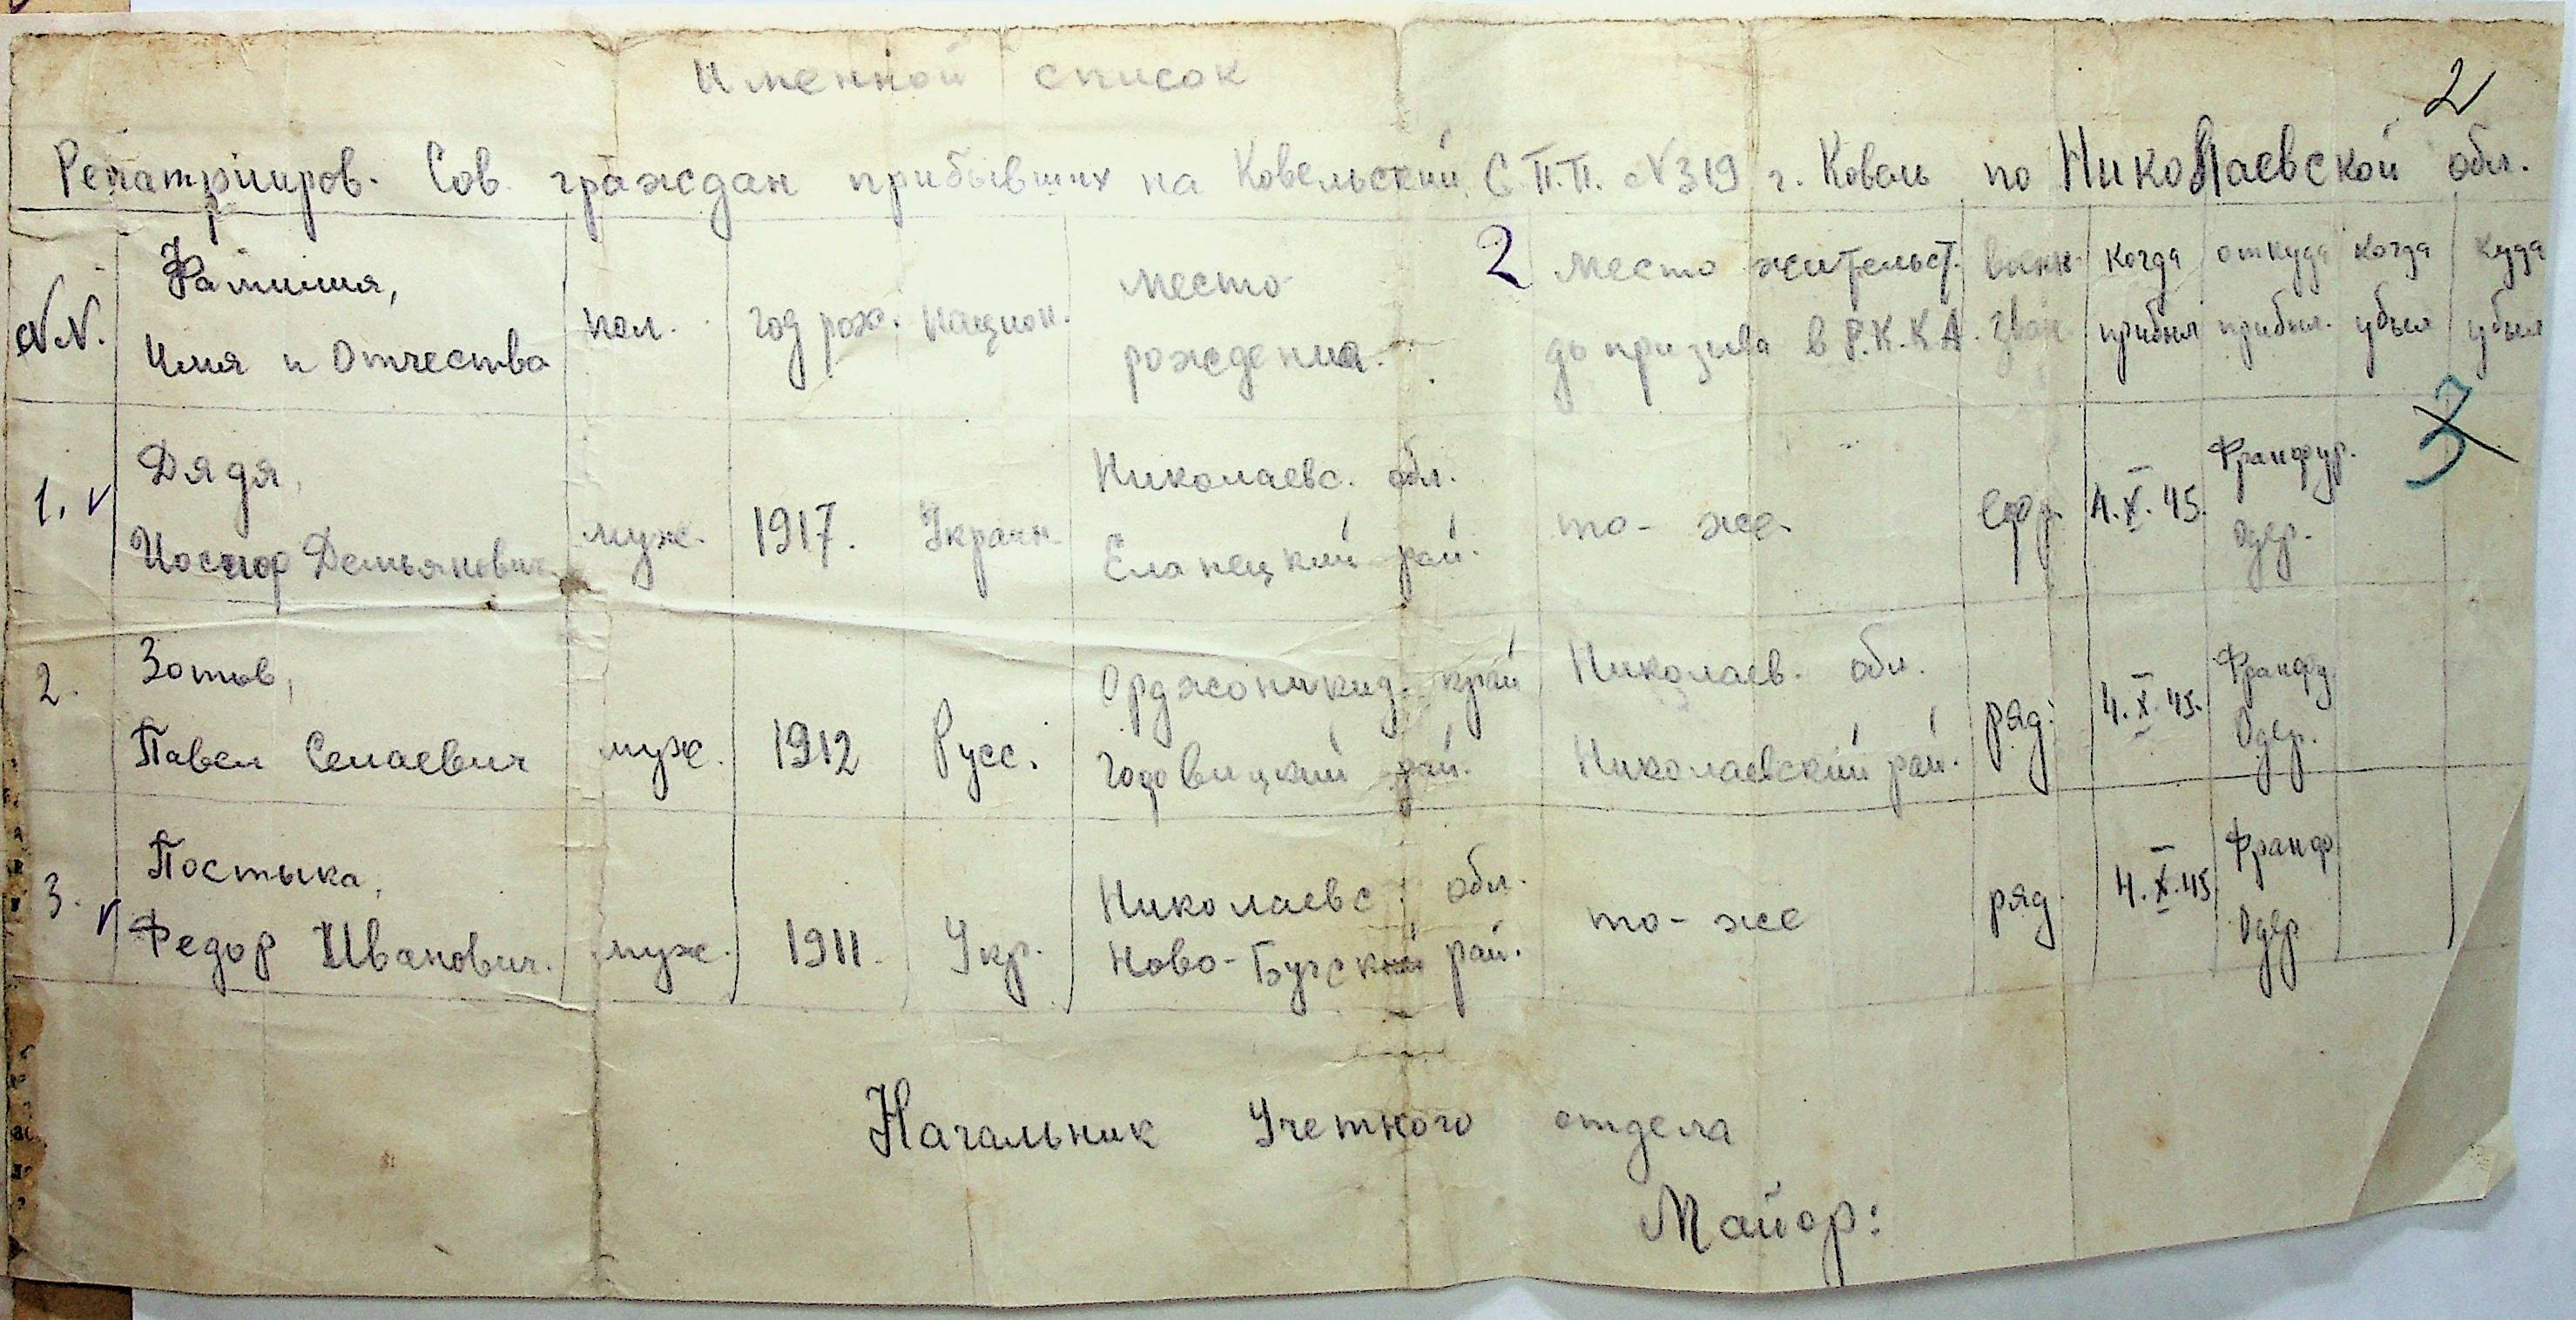 2
Именной список
Репатрииров. Сов. граждан прибывших на Ковельский С.П.П. №319 г. Ковель по Николаевской обл.
2
NN. Фамилия, Имя и Отчества пол. год рож. национ. место рождения. место жительст. до призыва в Р.К.К.А. воен. зван. когда прибыл откуда прибыл. когда убыл куда убыл
3
1. v Дядя, Иосиф Демьянович муж. 1917. Украин. Николаевс. обл. Еланецкий рай. то-же. ефр. 4.X.45. Франфур. Одер.
2. Зотов, Павел Семаевич муж. 1912 Русс. Орджоникид. край рай. Николаев. обл. Николаевский рай. ряд. 4.X.45. Франфу. Одер.
3. v Постыка, Федор Иванович. муж. 1911. Укр. Николаевс. обл. Ново-Бугский рай. то-же ряд. 4.X.45 Франф. Одер.
Начальник Учетного отдела
Майор: